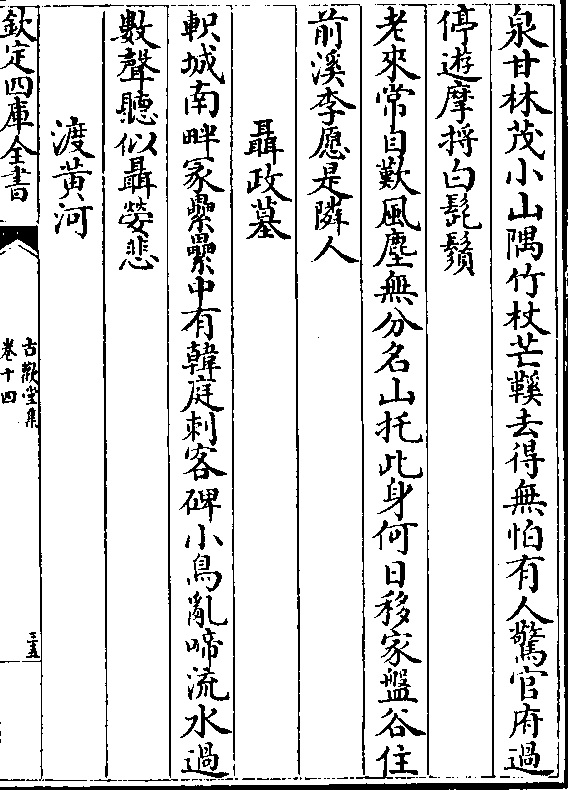 泉甘林茂小山隅竹杖芒鞵去得無怕有人驚官府過
停遊摩捋白髭鬚
老來常自歎風塵無分名山托此身何日移家盤谷住
前溪李愿是隣人
聶政墓
軹城南畔冢纍纍中有韓庭刺客碑小鳥亂啼流水過
數聲聽似聶嫈悲
渡黄河
欽定四庫全書
古歡堂集
卷十四
三五